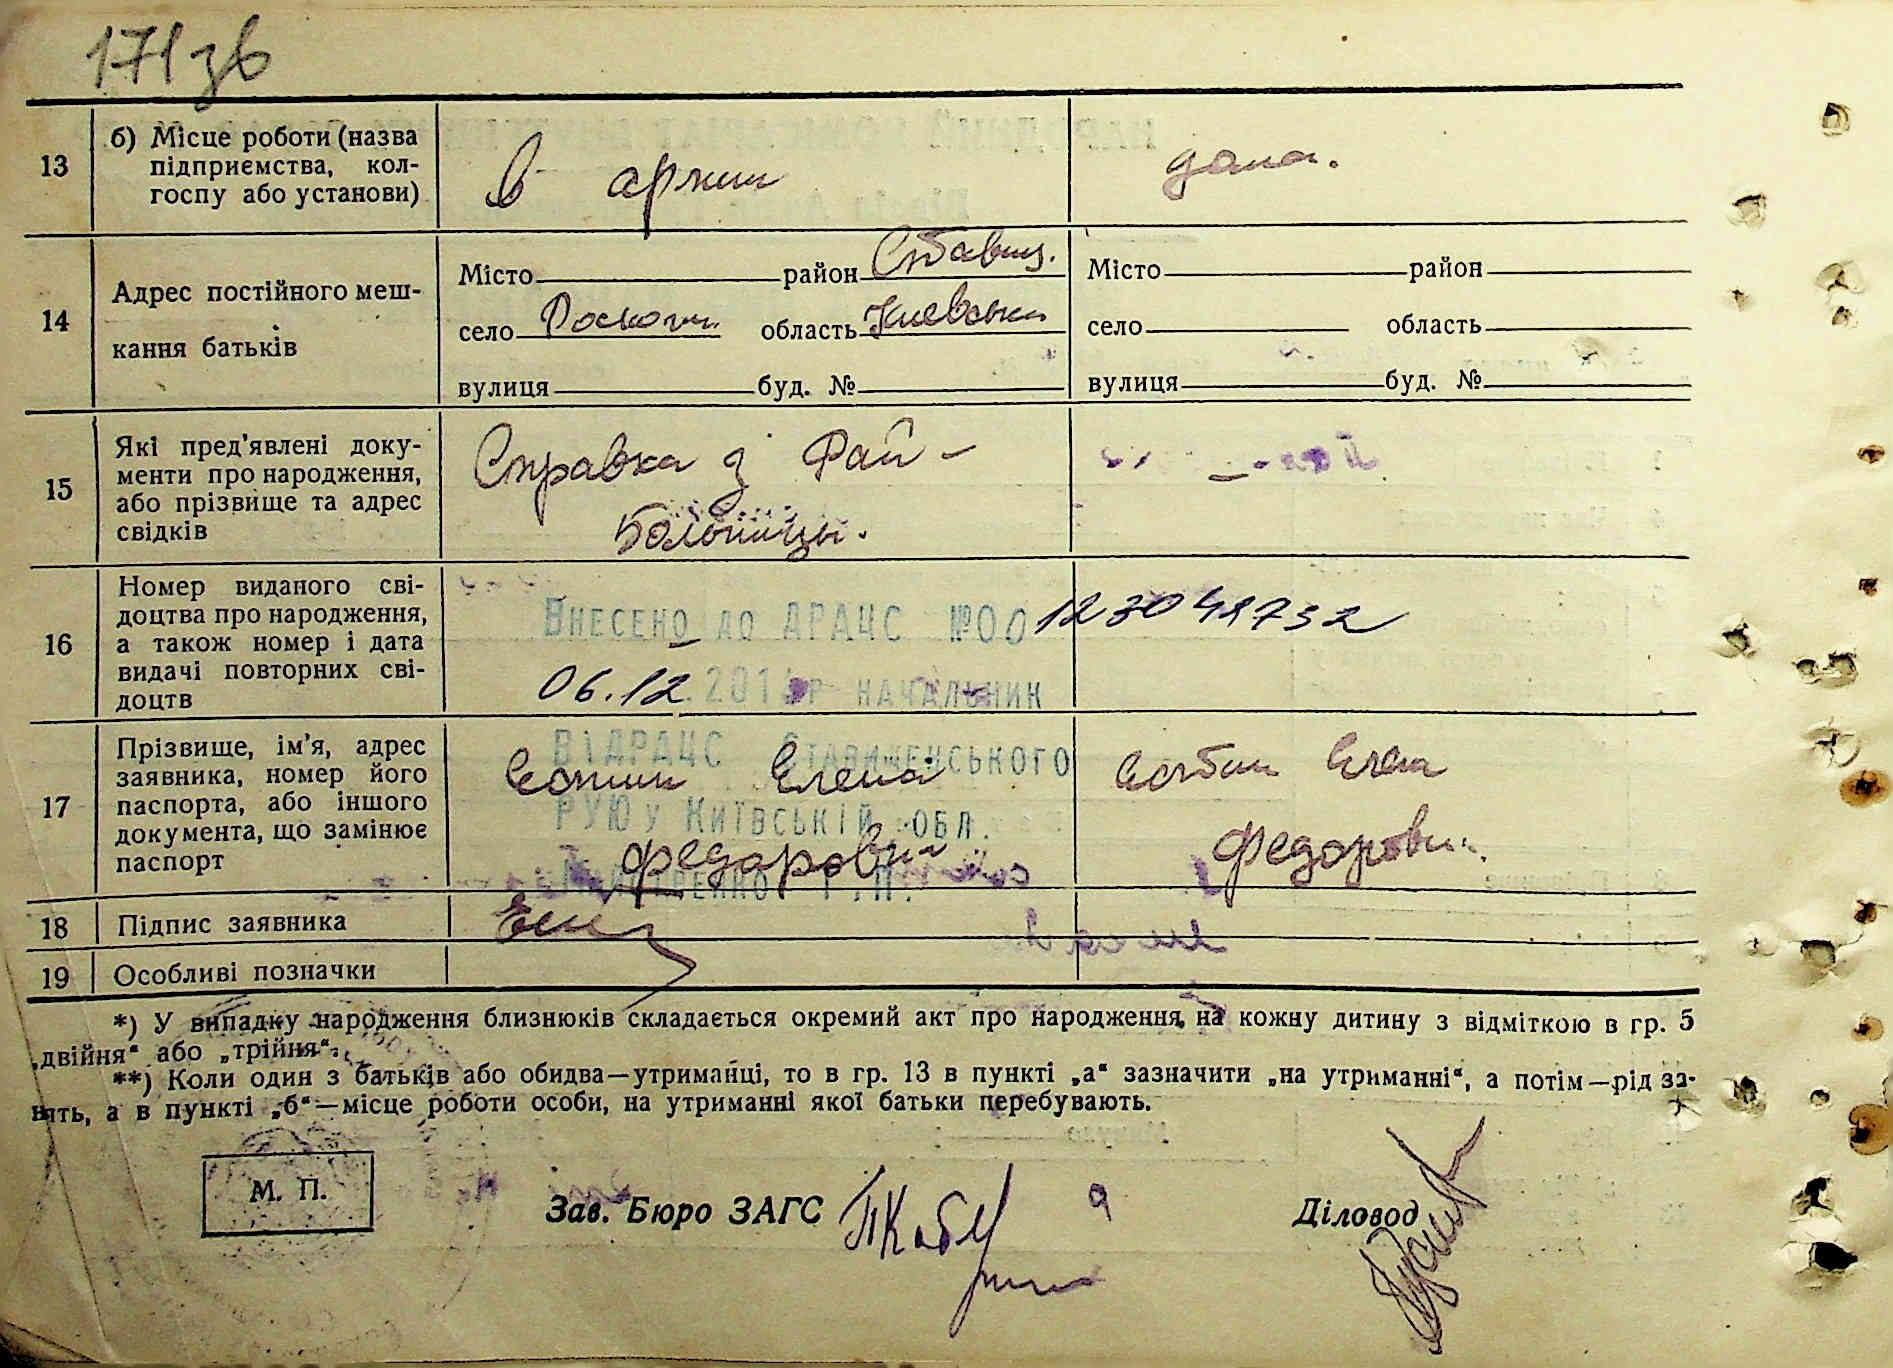 171 зв
13 б) Місце роботи (назва
підприємства, кол-
госпу або установи)
в армии
дома.
14 Адрес постійного меш-
кання батьків
Місто район Ставищ.
село область Киевська
вулиця буд. №
Місто район
село область
вулиця буд. №
15 Які пред'явлені доку-
менти про народження,
або прізвище та адрес
свідків
Справка з Рай-
больницы.
16 Номер виданого сві-
доцтва про народження,
а також номер і дата
видачі повторних сві-
доцтв
Внесено до ДРАЦС №00123041732
06.12.201 р начальник
ВІДРАЦС Ставищенського
РУЮ у Київській обл.
17 Прізвище, ім'я, адрес
заявника, номер його
паспорта, або іншого
документа, що замінює
паспорт
Елена
Федоровни
Федоровн.
18 Підпис заявника
19 Особливі позначки
*) У випадку народження близнюків складається окремий акт про народження на кожну дитину з відміткою в гр. 5
„двійня“ або „трійня“.
**) Коли один з батьків або обидва—утриманці, то в гр. 13 в пункті „а“ зазначити „на утриманні“, а потім—рід за-
нять, а в пункті „б“—місце роботи особи, на утриманні якої батьки перебувають.
М. П.
Зав. Бюро ЗАГС
Діловод